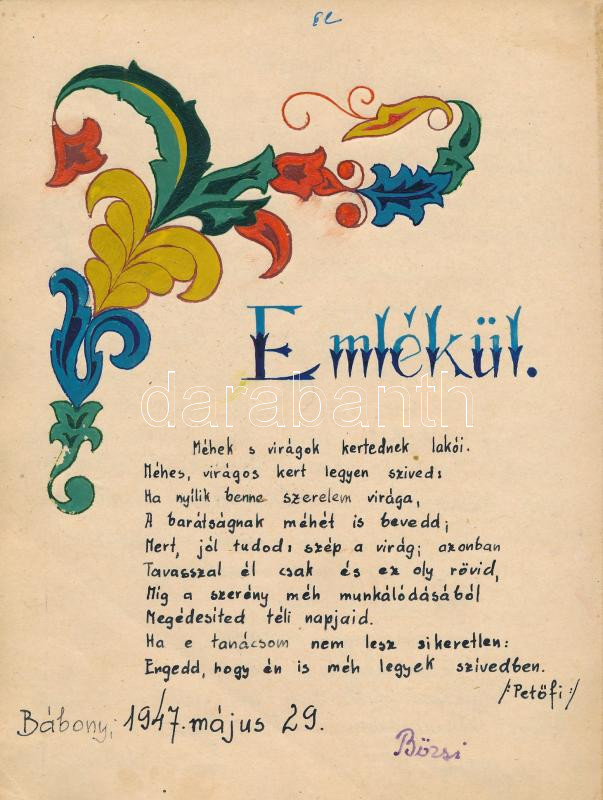 62
Emlékül.
darabanth
Méhek s virágok kertednek lakói.
Méhes, virágos kert legyen szived:
Ha nyílik benne szerelem virága,
A barátságnak méhét is bevedd;
Mert, jól tudod: szép a virág; azonban
Tavasszal él csak és ez oly rövid,
Mig a szerény méh munkálódásából
Megédesited téli napjaid.
Ha e tanácsom nem lesz sikeretlen:
Engedd, hogy én is méh legyek szivedben.
/:Petőfi:/
Bábony, 1947. május 29.
Bözsi